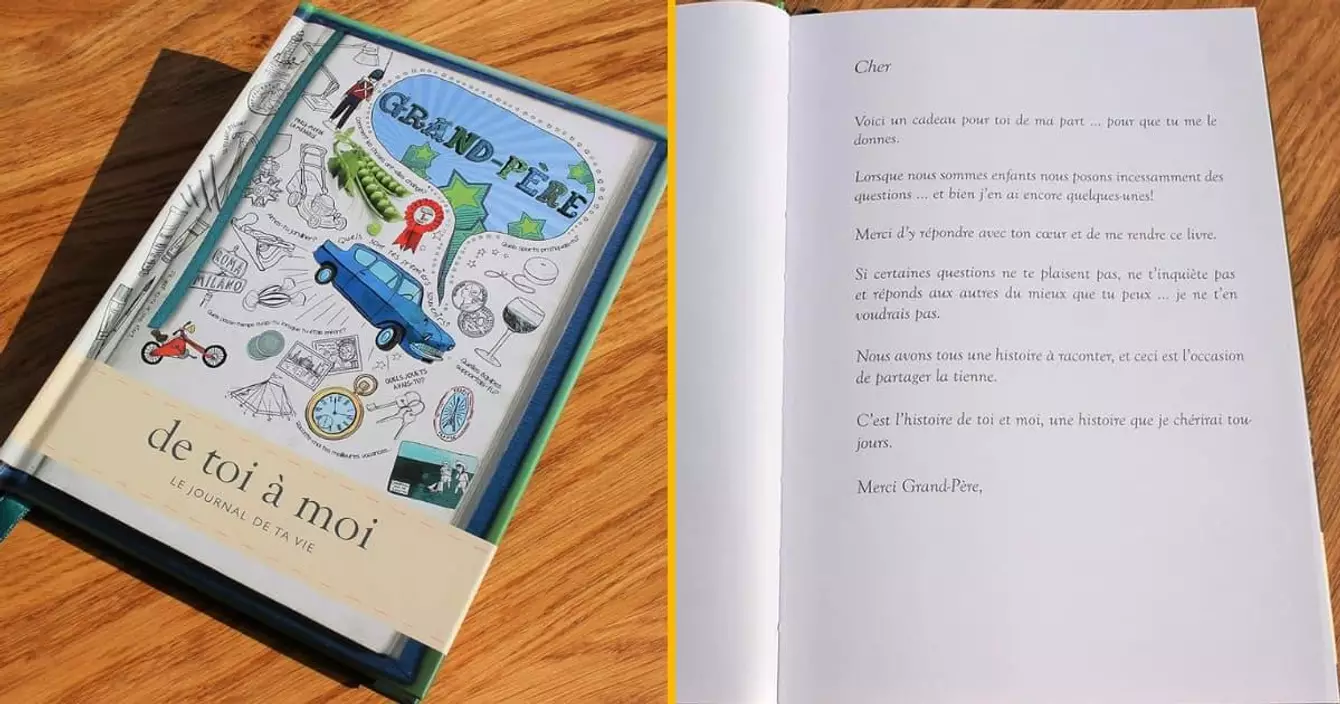 GRAND-PÈRE
Quels sont tes premiers souvenirs?
Quels sports pratiquais-tu?
Aimes-tu jardiner?
ROMA
MILANO
Quelles équipes
supportais-tu?
QUELS JOUETS
AVAIS-TU?
Raconte-moi tes meilleures vacances...
de toi à moi
LE JOURNAL DE TA VIE
Cher
Voici un cadeau pour toi de ma part ... pour que tu me le
donnes.
Lorsque nous sommes enfants nous posons incessamment des
questions ... et bien j'en ai encore quelques-unes!
Merci d'y répondre avec ton cœur et de me rendre ce livre.
Si certaines questions ne te plaisent pas, ne t'inquiète pas
et réponds aux autres du mieux que tu peux ... je ne t'en
voudrais pas.
Nous avons tous une histoire à raconter, et ceci est l'occasion
de partager la tienne.
C'est l'histoire de toi et moi, une histoire que je chérirai tou-
jours.
Merci Grand-Père,